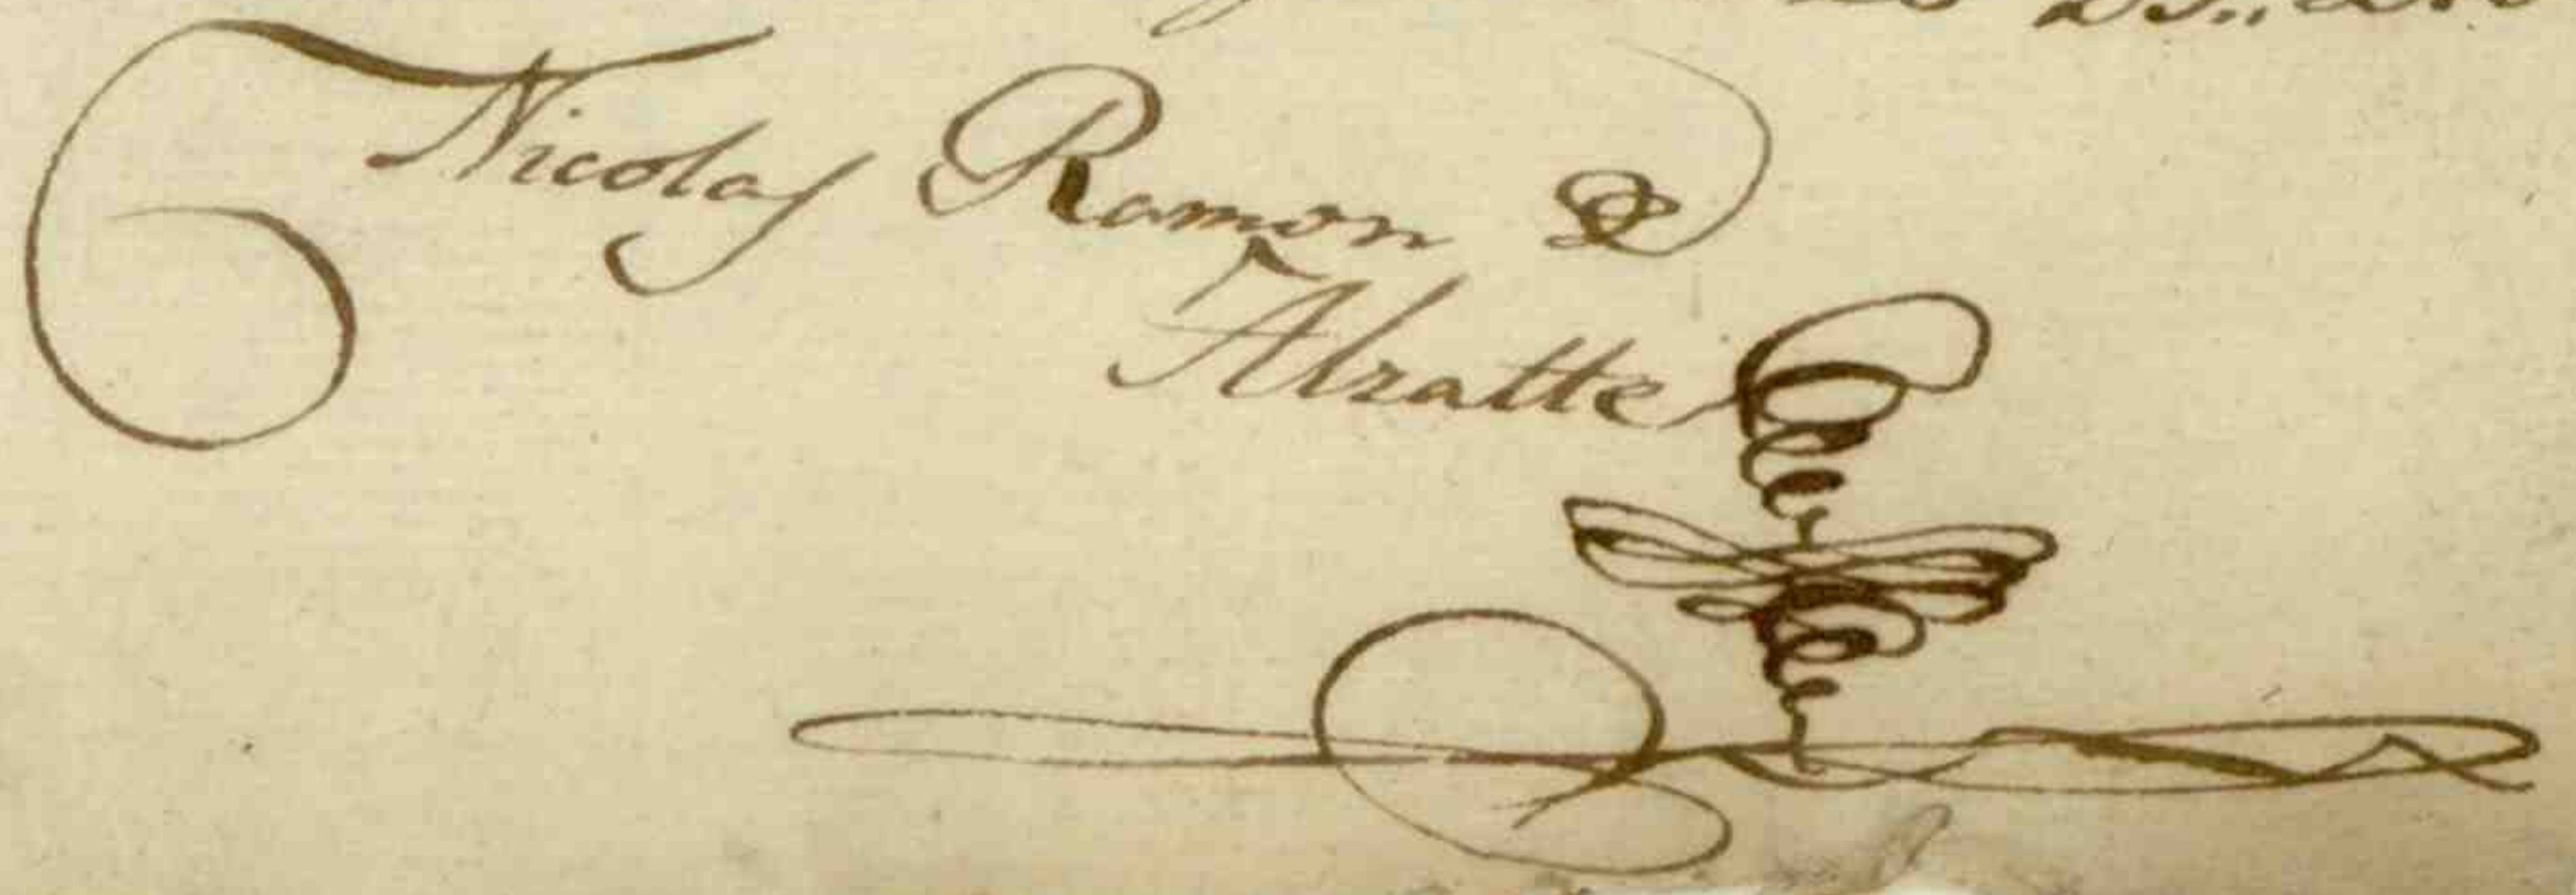 Nicolas Ramon de
Alzatte